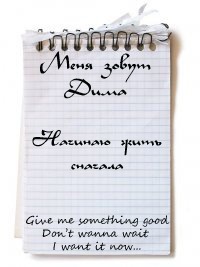 Меня зовут
Дима
Начинаю жить
сначала
Give me something good
Don't wanna wait
I want it now...